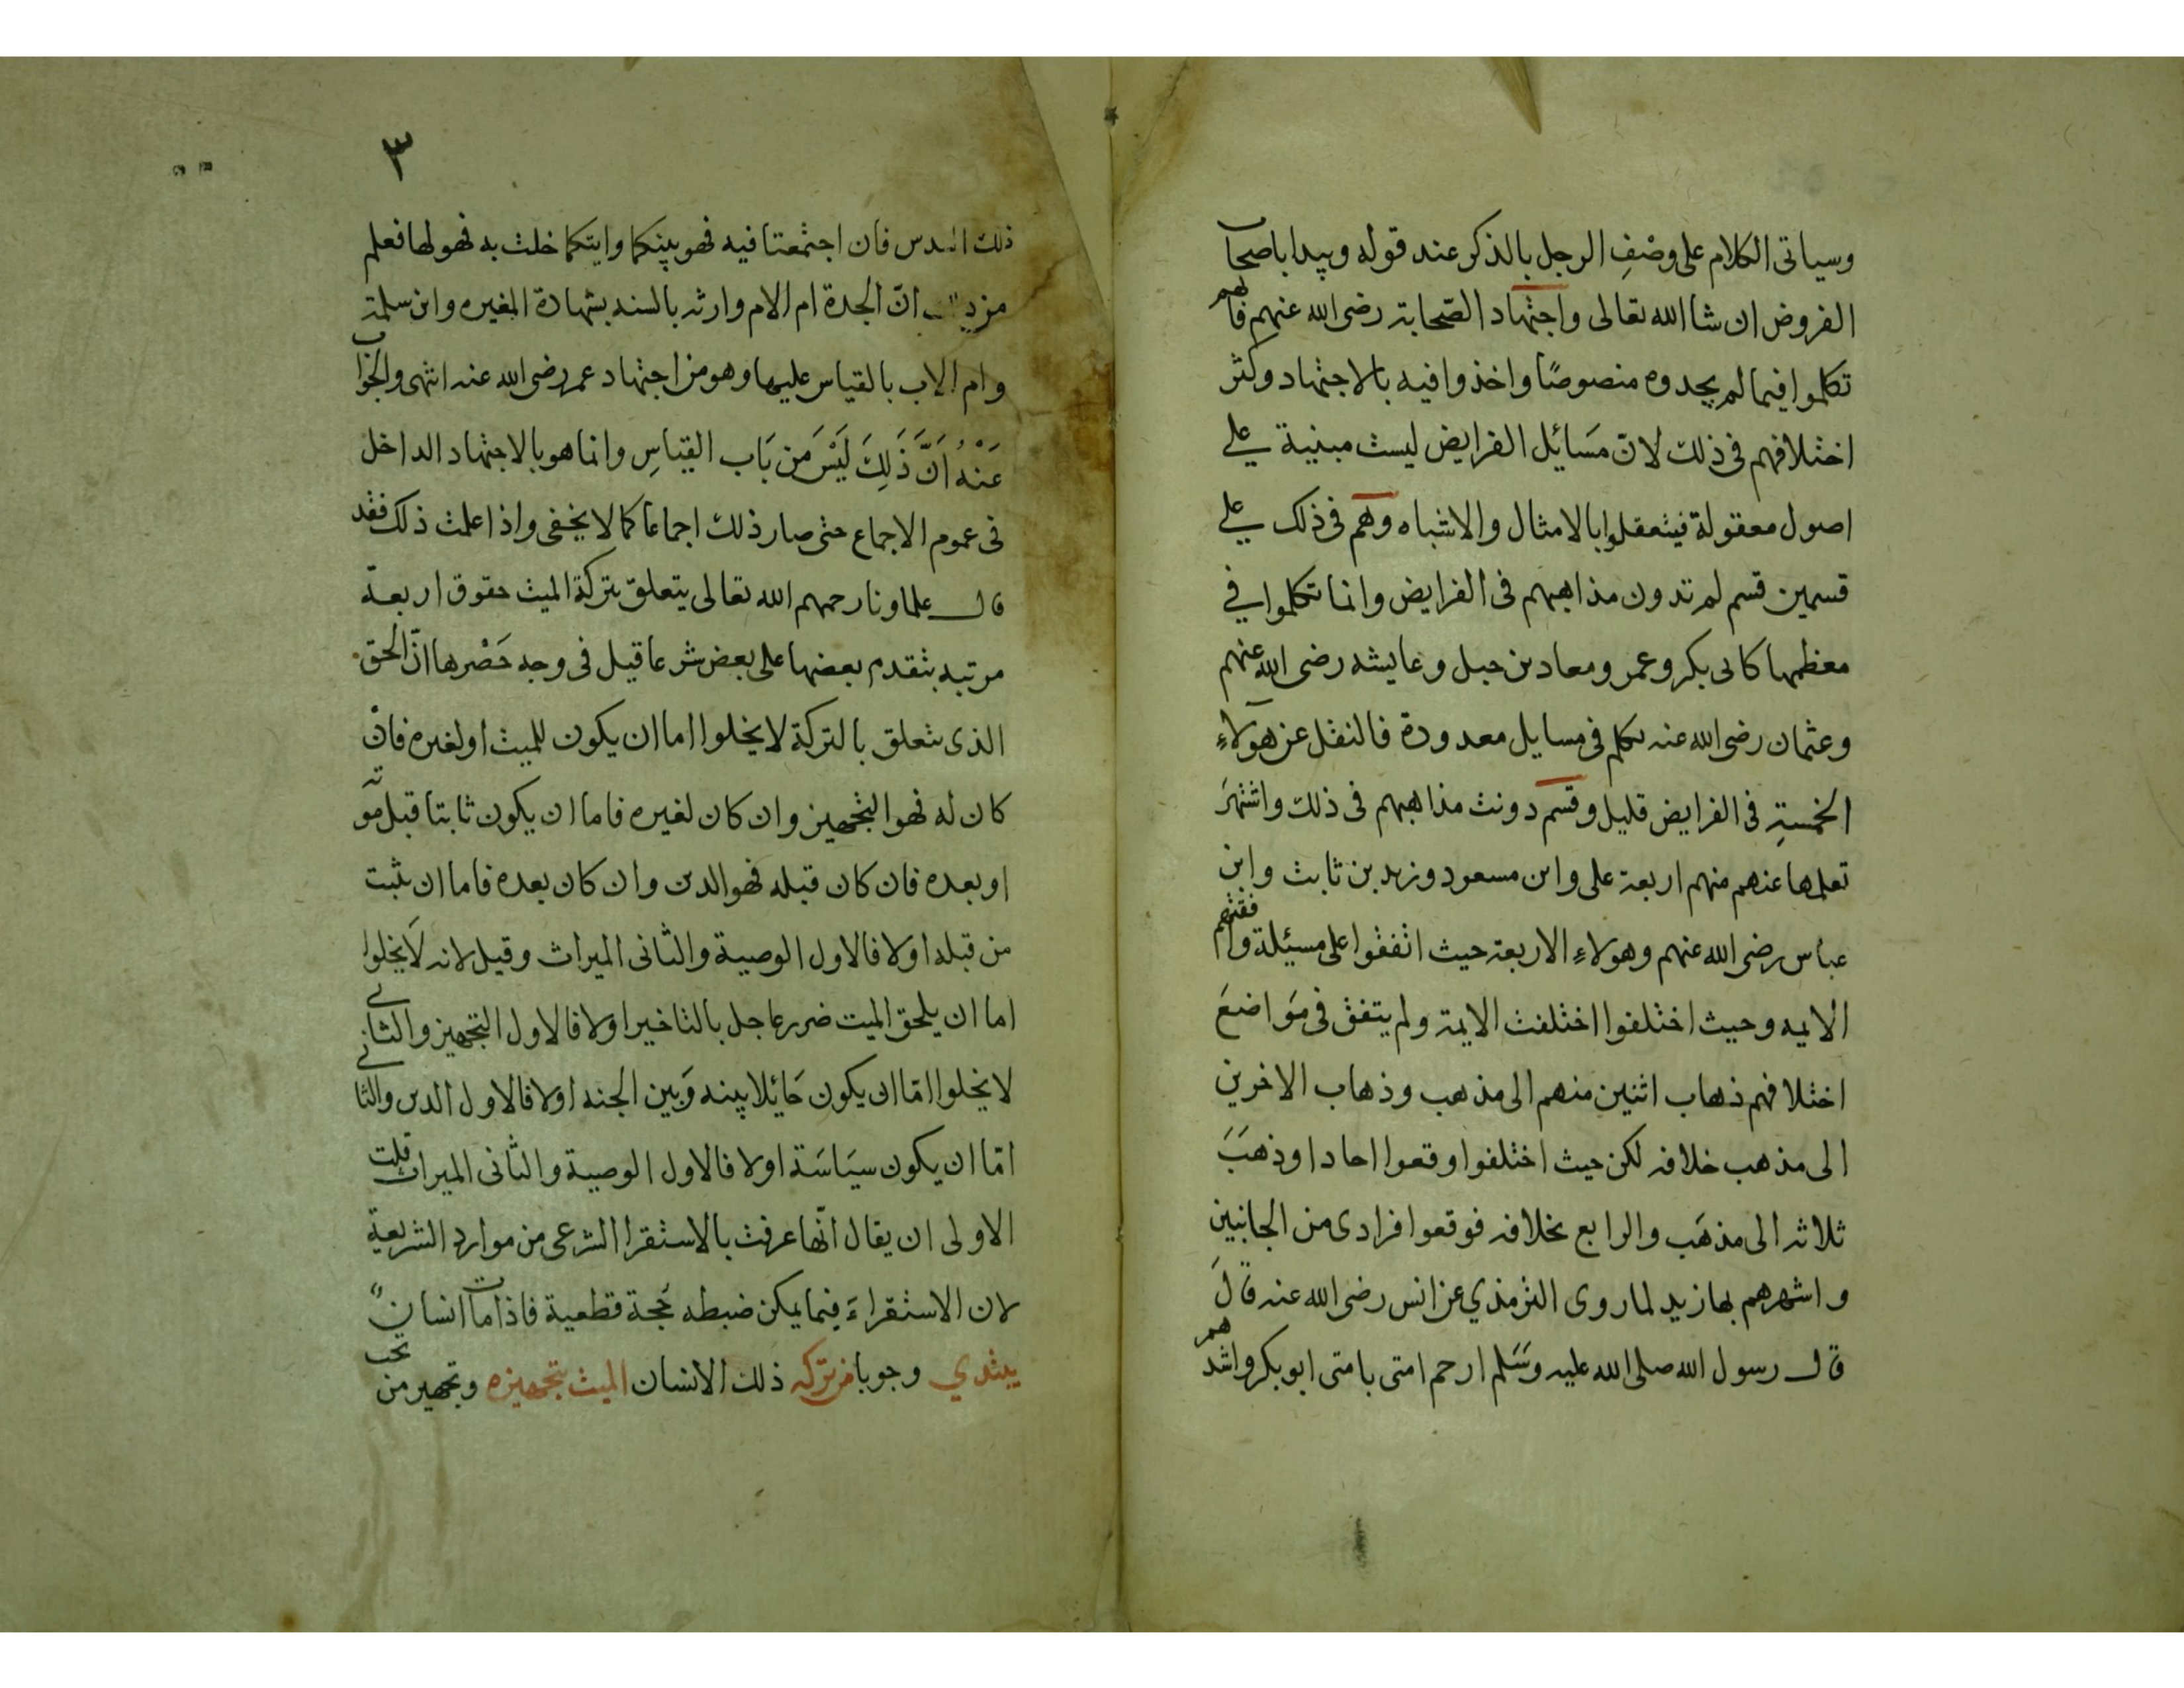 وسياتى الكلام على وصْفِ الرجل بالذكر عند قوله ويبدا باصحاب
الفروض ان شا الله تعالى واجتهاد الصّحابة رضى الله عنهم فانهم
تكلموا فيما لم يجدوه منصوصًا واخذوا فيه بالاجتهاد وكثر
اختلافهم فى ذلك لانّ مسَائل الفرايض ليست مبنية على
اصول معقولة فيتعقلوا بالامثال والاشباه وهم فى ذلك على
قسمين قسم لم تدون مذاهبهم فى الفرايض وانما تكلموا في
معظمها كابى بكر وعمر ومعاد بن جبل وعايشه رضى الله عنهم
وعثمان رضى الله عنه تكلم فى مسايل معدودة فالنقل عن هولاءِ
الخمسةِ فى الفرايض قليل وقسم دونت مذاهبهم فى ذلك واشتهرَ
تعلمها عنهم منهم اربعة على وابن مسعود وزيد بن ثابت وابن
عباس رضى الله عنهم وهولاءِ الاربعة حيث اتفقوا على مسيئلة وافقتهم
الايمه وحيث اختلفوا اختلفت الايمة ولم يتفق فى مَواضعَ
اختلافهم ذهاب اثنين منهم الى مذهب وذهاب الاخرين
الى مذهب خلافه لكن حيث اختلفوا وقعوا احادا وذهَبَ
ثلاثه الى مذهَب والرابع بخلافه فوقعوا فرادى من الجانبين
واشهرهم بها زيد لما روى الترمذي عن انس رضى الله عنه قالَ
قال رسول الله صلى الله عليه وسَلم ارحم امتى بامتى ابو بكر واشدهم
٣
ذلك السدس فان اجتمعتا فيه فهو بينكما وايتكما خلت به فهو لها فعلم
من انّ الجدة ام الام وارثه بالسنه بشهادة المغيره وابن سلمة
وام الاب بالقياس عليها وهو من اجتهاد عمر رضى الله عنه انتهى والجواب
عَنْهُ اَنَّ ذَلِكَ لَيْسَ مِن بَاب القِيَاسِ وانما هو بالاجتهاد الداخل
فى عموم الاجماع حتى صار ذلك اجماعا كما لا يخفى واذا علمت ذلك فقد
قال علماونا رحمهم الله تعالى يتعلق بتركة الميت حقوق اربعة
مرتبه يتقدم بعضها على بعض شرعا قيل فى وجه حَصْرها انّ الحق
الذى يتعلق بالتركة لا يخلوا اما ان يكون للميت او لغيره فانْ
كان له فهو التجهيز وان كان لغيره فاما ان يكون ثابتا قبل موته
او بعده فان كان قبله فهو الدين وان كان بعده فاما ان يثبت
من قبله او لا فالاول الوصية والثانى الميراث وقيل لانه لَا يخلوا
اما ان يلحق الميت ضرر عاجل بالتاخير اولا فالاول التجهيز والثانى
لا يخلوا امّا ان يكون حَائلا بينه وَبين الجنه اولا فالاول الدين والثانى
امّا ان يكون سيَاسَة اولا فالاول الوصية والثانى الميراث قلت
الاولى ان يقال انّها عرفت بالاستقرا الشرعى من موارد الشريعة
لان الاستقراءَ فيما يمكن ضبطه حُجة قطعية فاذا مات انسان
يبتدي وجوبا من تركه ذلك الانسان الميت بتجهيزه وتجهيز من تجب